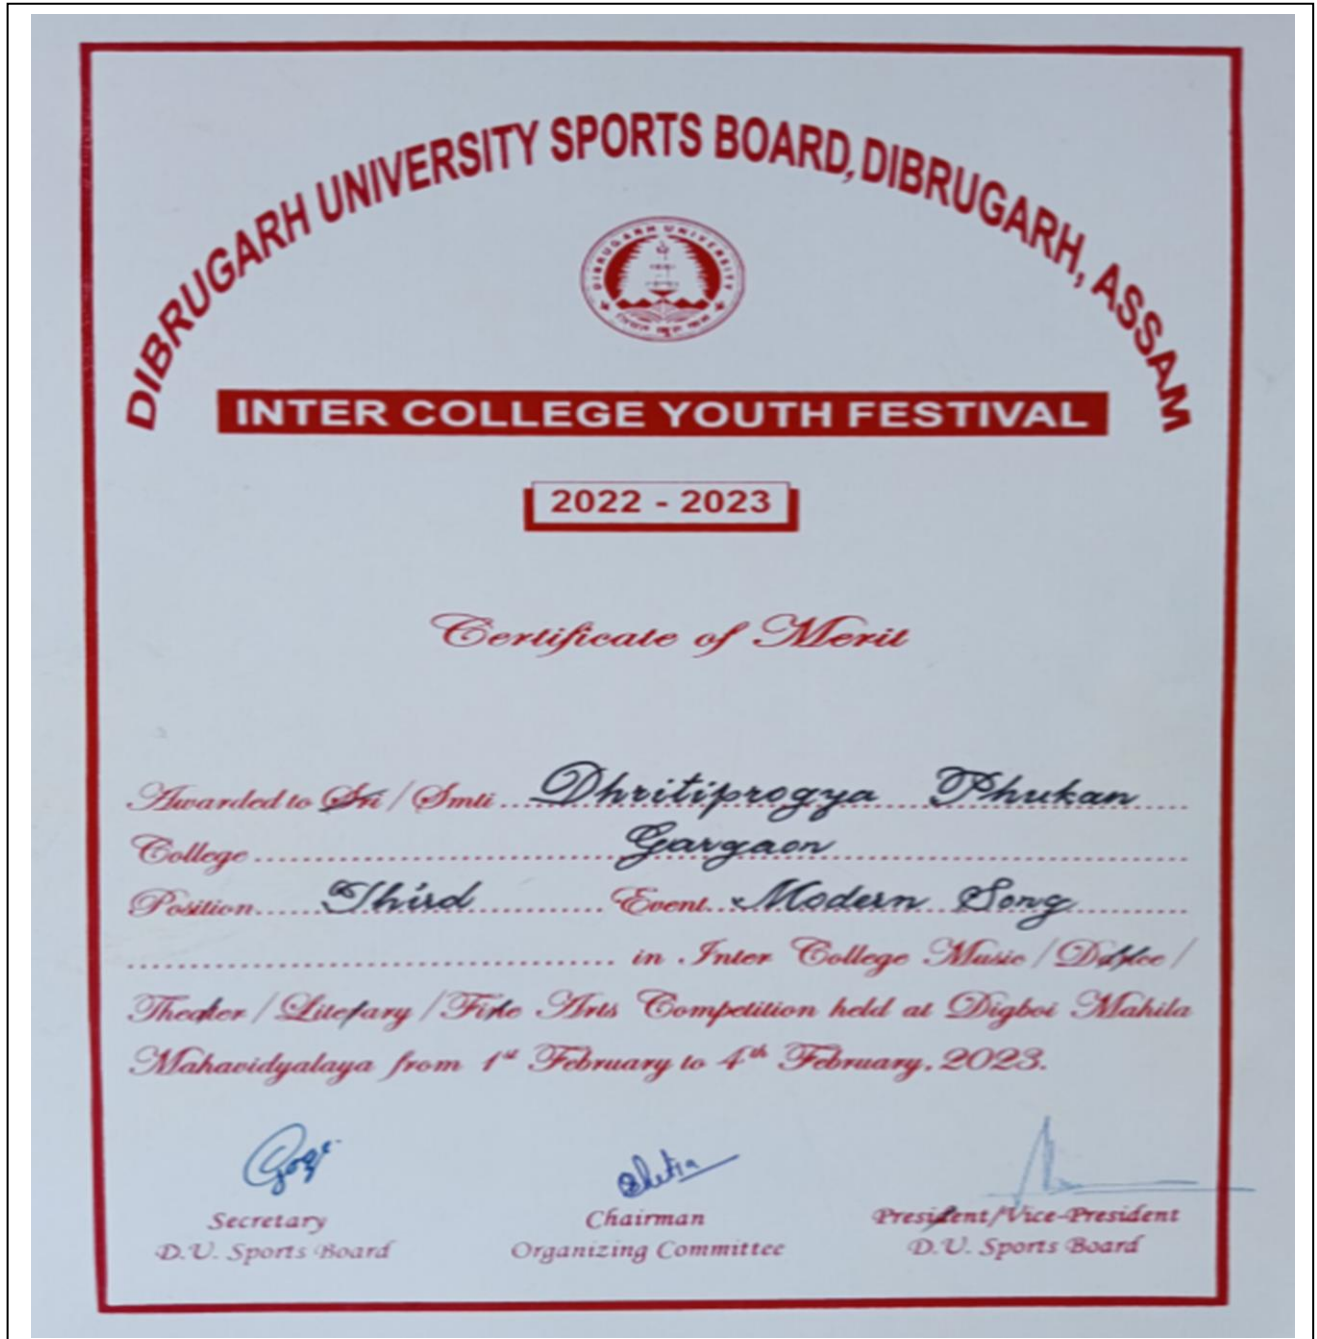 DIBRUGARH UNIVERSITY SPORTS BOARD, DIBRUGARH, ASSAM
DIBRUGARH UNIVERSITY
INTER COLLEGE YOUTH FESTIVAL
2022 - 2023
Certificate of Merit
Awarded to Sri / Smti Dhritiprogya Phukan
College Gargaon
Position Third Event Modern Song
in Inter College Music / Dance /
Theater / Literary / Fine Arts Competition held at Digboi Mahila
Mahavidyalaya from 1st February to 4th February, 2023.
Secretary Chairman President/Vice-President
D.U. Sports Board Organizing Committee D.U. Sports Board